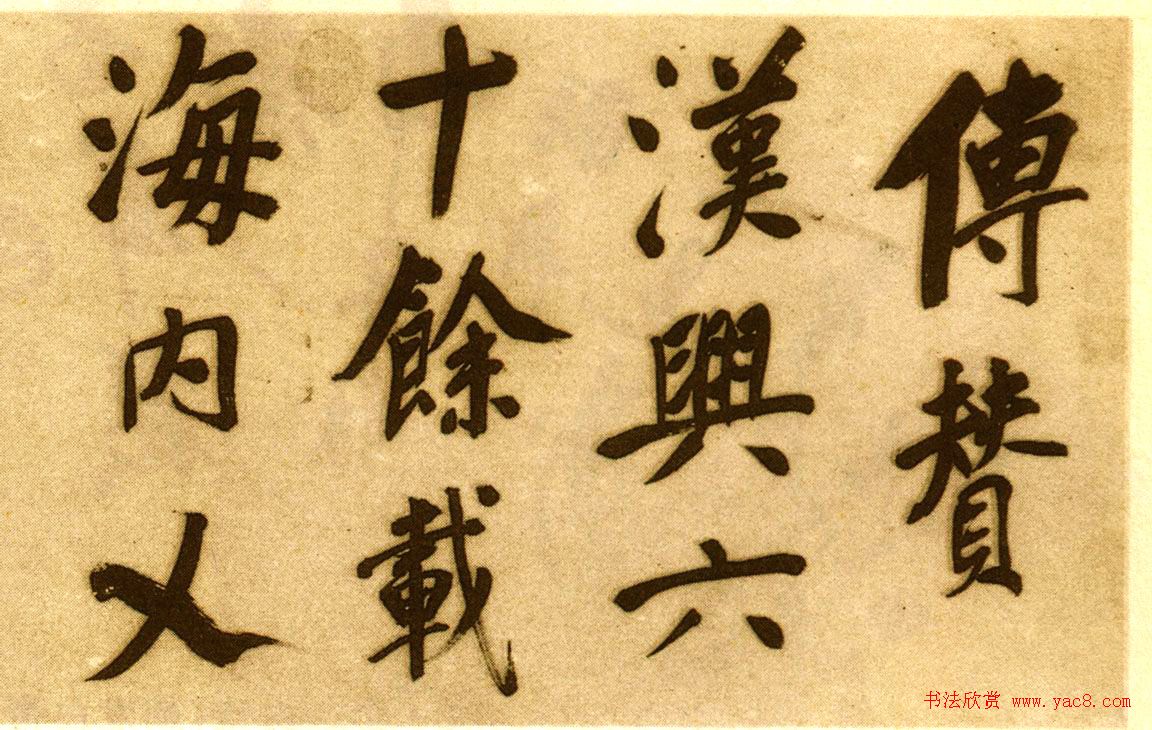 傳贊
漢興六
十餘載
海内乂
书法欣赏 www.yac8.com